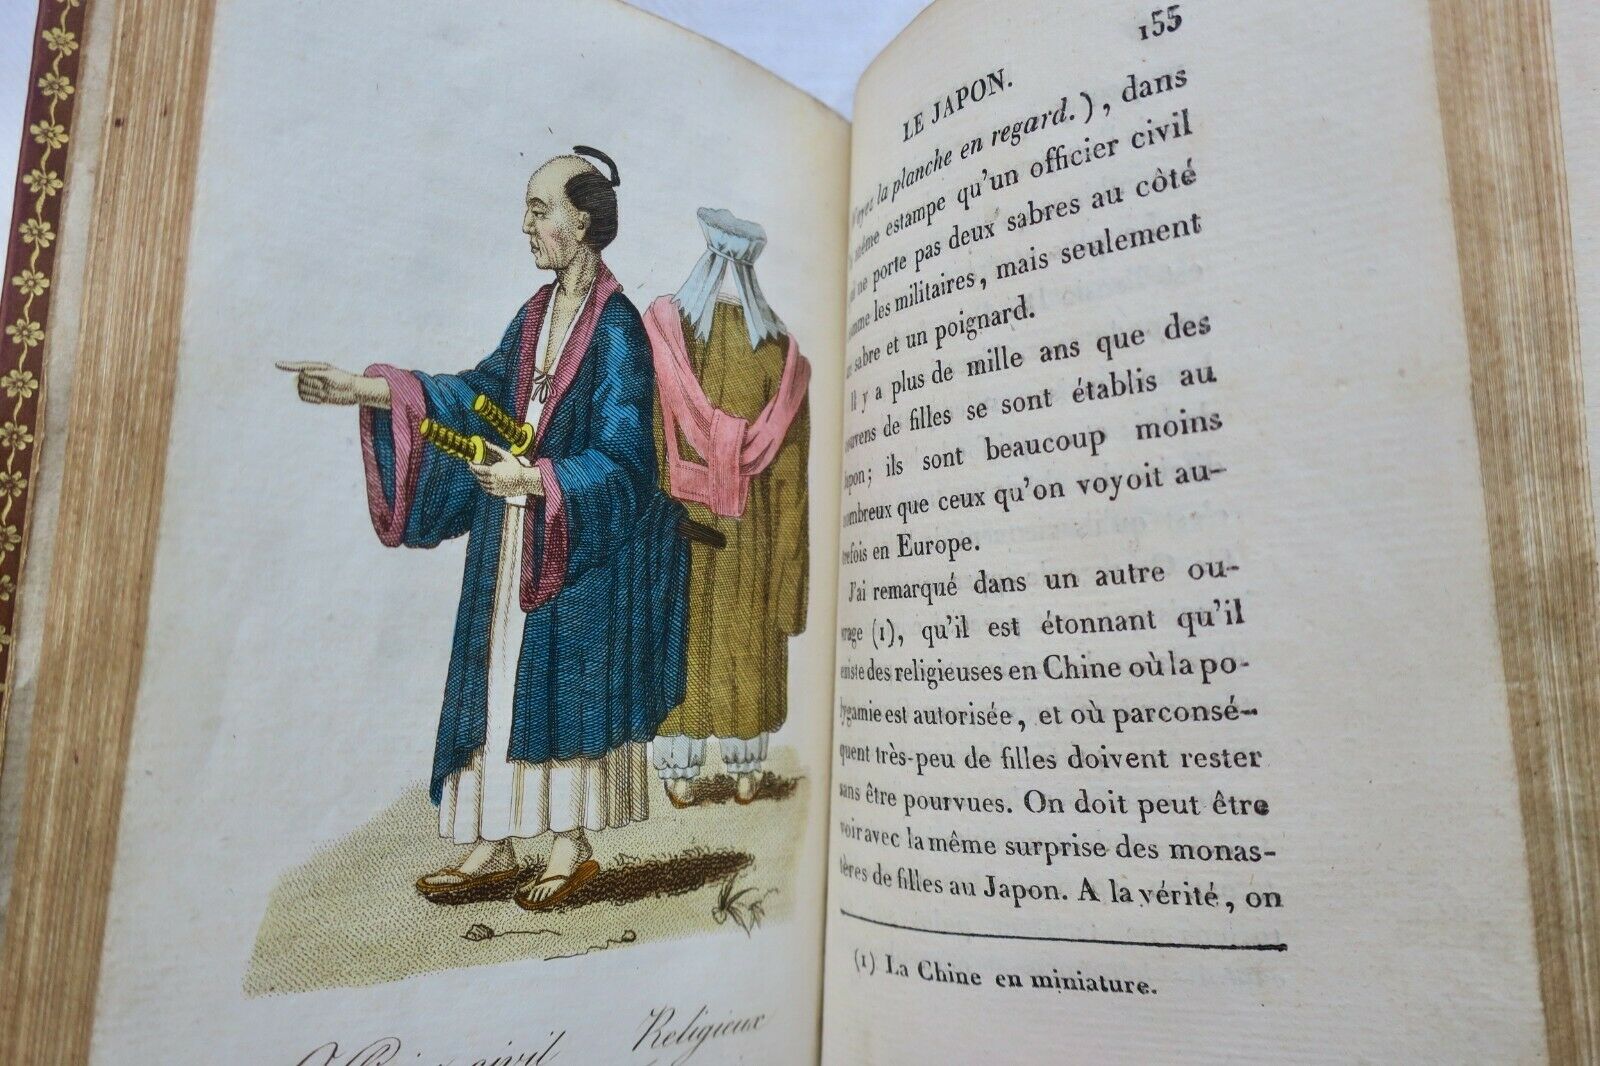 155
LE JAPON.
Voyez la planche en regard.), dans
la même estampe qu'un officier civil
qui ne porte pas deux sabres au côté
comme les militaires, mais seulement
un sabre et un poignard.
Il y a plus de mille ans que des
couvens de filles se sont établis au
Japon; ils sont beaucoup moins
nombreux que ceux qu'on voyoit au-
trefois en Europe.
J'ai remarqué dans un autre ou-
vrage (1), qu'il est étonnant qu'il
existe des religieuses en Chine où la po-
lygamie est autorisée, et où parconsé-
quent très-peu de filles doivent rester
sans être pourvues. On doit peut être
voir avec la même surprise des monas-
tères de filles au Japon. A la vérité, on
(1) La Chine en miniature.
civil Religieux